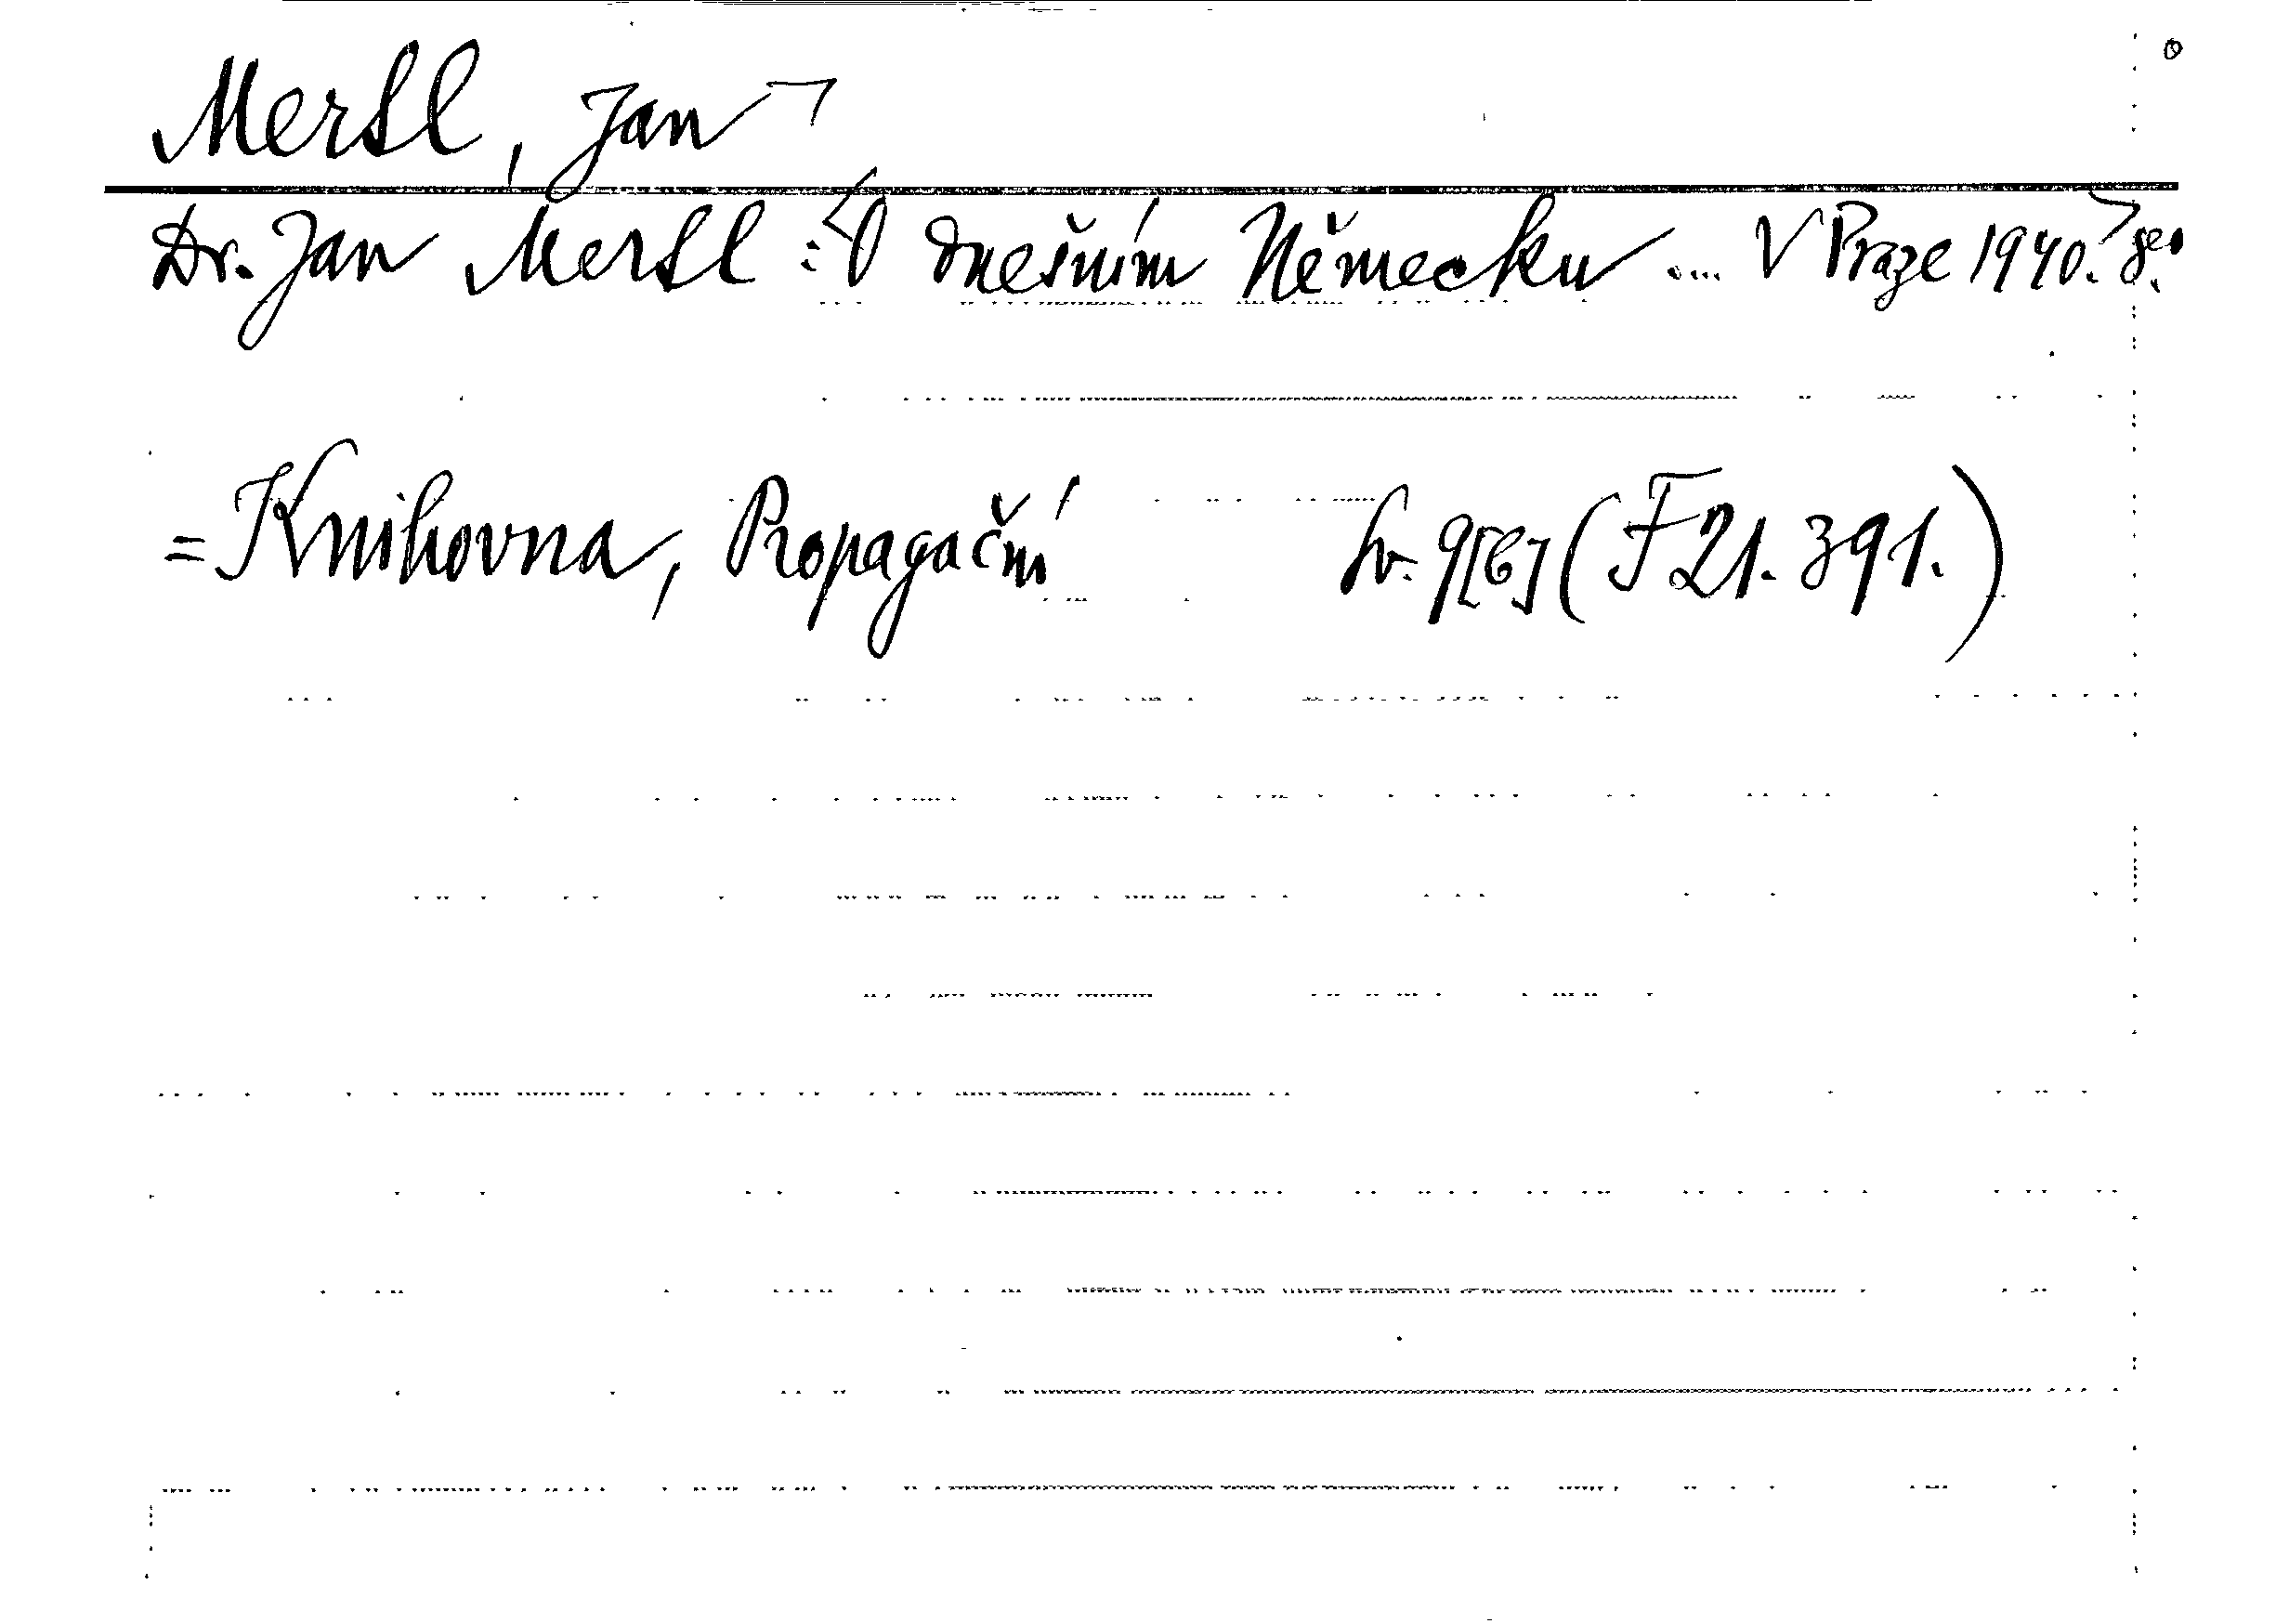 Mertl, Jan
Dr. Jan Mertl: O dnešním Německu .... V Praze 1940. 8°.
= Knihovna, Propagační sv. 9[b] (F 21.391.)